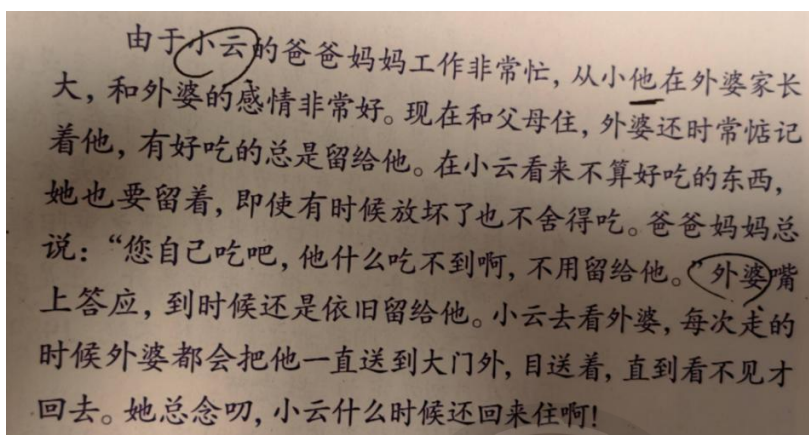 由于小云的爸爸妈妈工作非常忙，从小他在外婆家长
大，和外婆的感情非常好。现在和父母住，外婆还时常惦记
着他，有好吃的总是留给他。在小云看来不算好吃的东西，
她也要留着，即使有时候放坏了也不舍得吃。爸爸妈妈总
说：“您自己吃吧，他什么吃不到啊，不用留给他。”外婆嘴
上答应，到时候还是依旧留给他。小云去看外婆，每次走的
时候外婆都会把他一直送到大门外，目送着，直到看不见才
回去。她总念叨，小云什么时候还回来住啊！